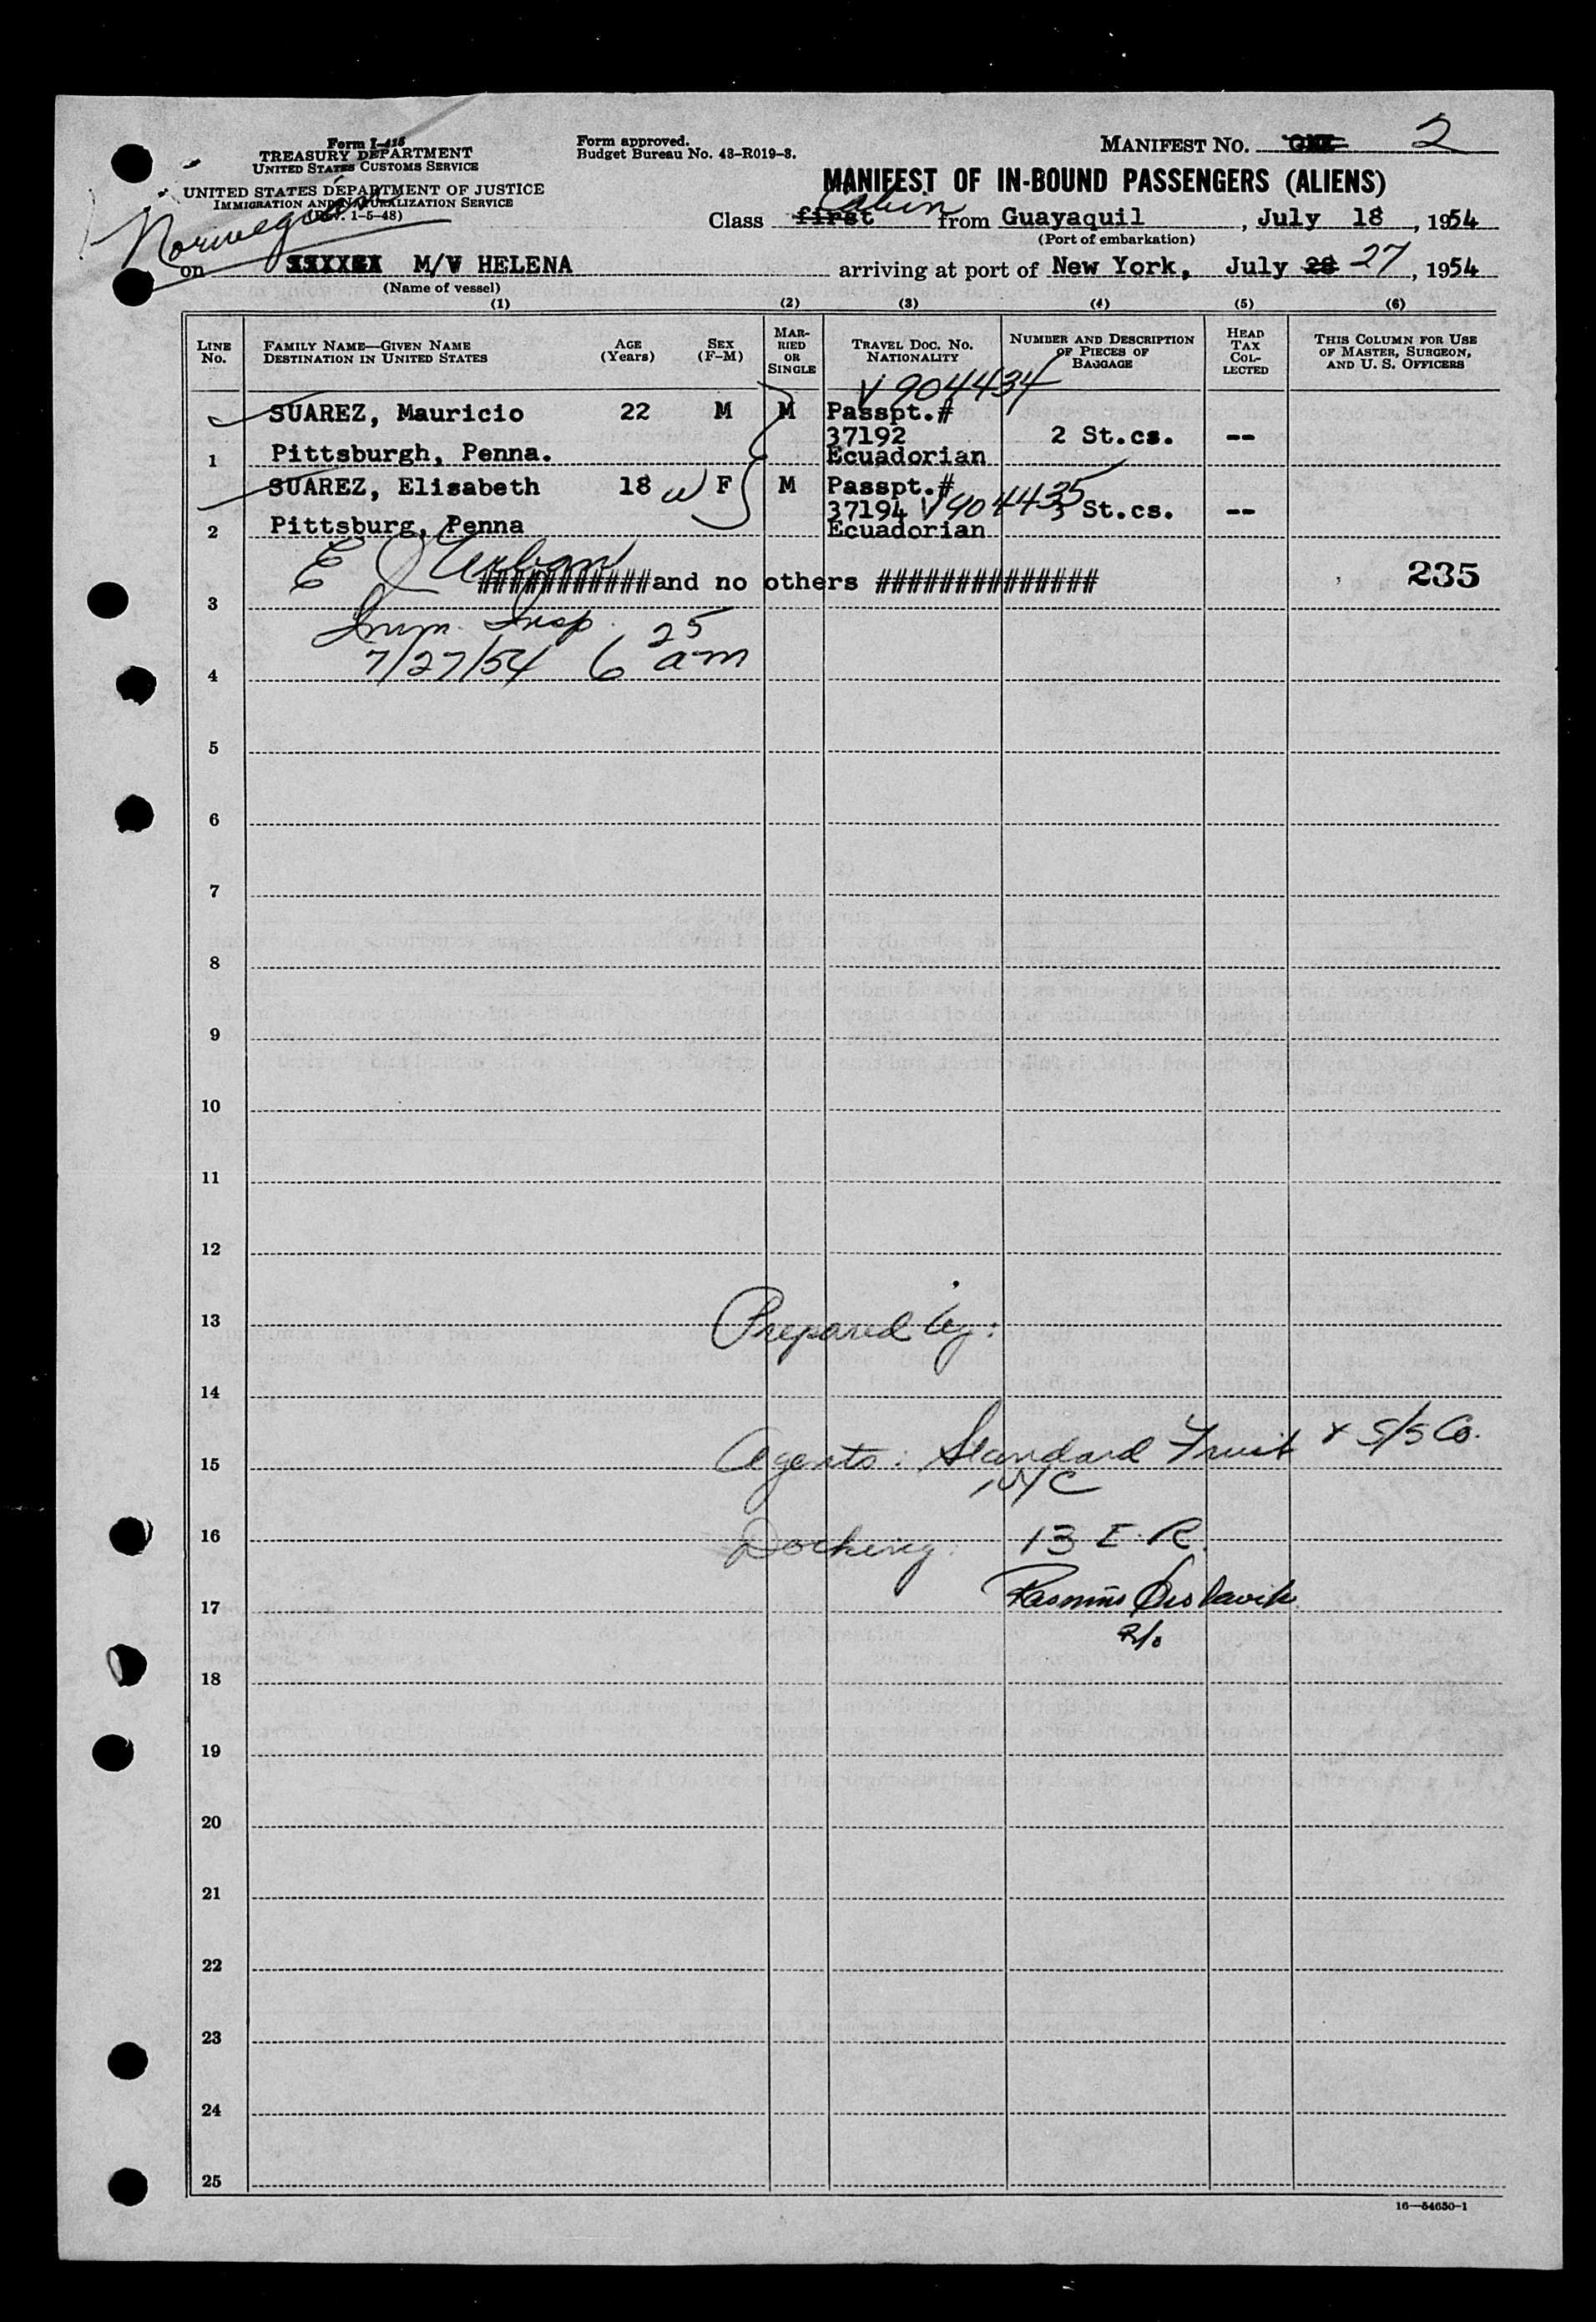 Form I-415
TREASURY DEPARTMENT
UNITED STATES CUSTOMS SERVICE
UNITED STATES DEPARTMENT OF JUSTICE
IMMIGRATION AND NATURALIZATION SERVICE
(Rev. 1-5-48)
Norwegian
Form approved.
Budget Bureau No. 43-R019-3.
MANIFEST NO. 2
MANIFEST OF IN-BOUND PASSENGERS (ALIENS)
Class first Cabin from Guayaquil, July 18, 1954
(Port of embarkation)
on XXXXXX M/V HELENA arriving at port of New York, July 28 27, 1954
(Name of vessel)
(1) (2) (3) (4) (5) (6)
LINE No. FAMILY NAME—GIVEN NAME DESTINATION IN UNITED STATES AGE (Years) SEX (F-M) MARRIED OR SINGLE TRAVEL DOC. NO. NATIONALITY NUMBER AND DESCRIPTION OF PIECES OF BAGGAGE HEAD TAX COLLECTED THIS COLUMN FOR USE OF MASTER, SURGEON, AND U. S. OFFICERS
V904434
SUAREZ, Mauricio 22 M M Passpt.#
37192 2 St.cs. --
1 Pittsburgh, Penna. Ecuadorian
SUAREZ, Elisabeth 18 W F M Passpt.#
37194 V904435 3 St.cs. --
2 Pittsburg, Penna Ecuadorian
E J Urban
###########and no others ############## 235
3
Imm. Insp.
7/27/54 6 25 am
4
5
6
7
8
9
10
11
12
13 Prepared by:
14
15 Agents: Standard Fruit & S/S Co.
NYC
16 Docking: 13 E. R.
17
R/o
18
19
20
21
22
23
24
25
16—54650-1